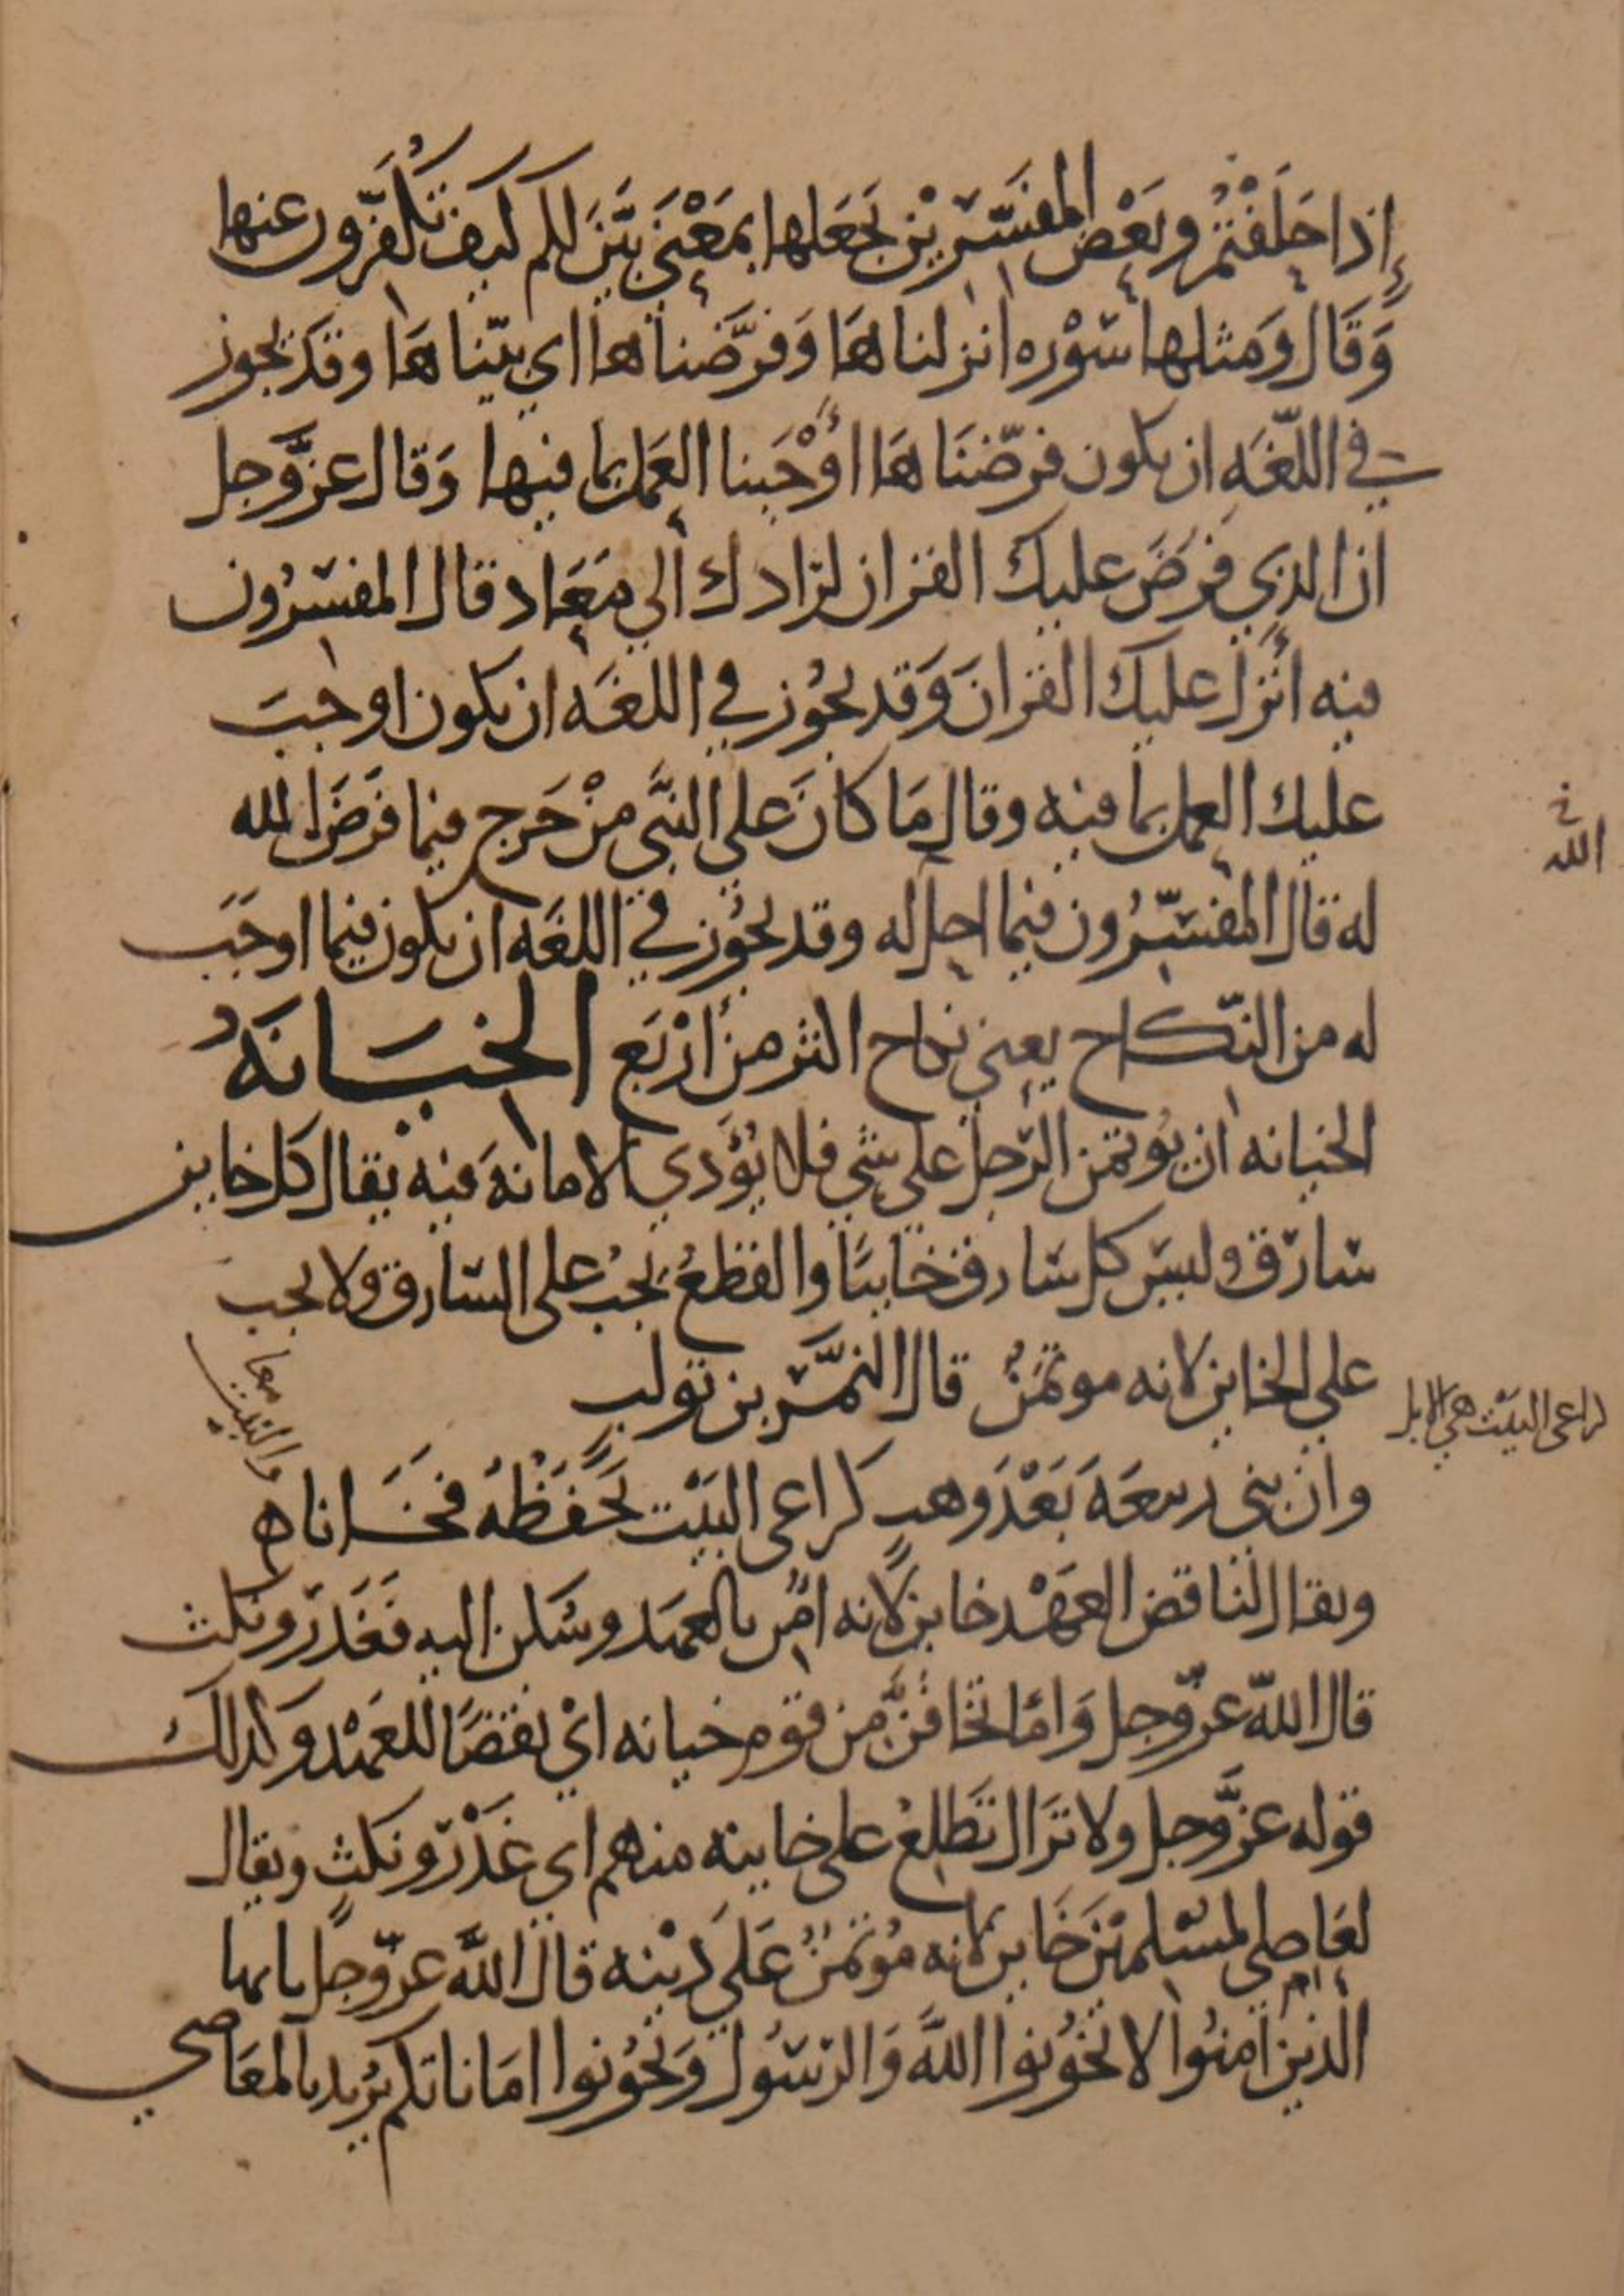 إذا حَلَفْتُمْ وبَعْض المفسّرِيْن يَجْعَلها بمَعْنَى بَيَّنَ لكم كيف تُكَفِّرون عنها
وَقَال وَمثلها سَوْره انزلناهَا وَفرَّضناها اي بيّناهَا وقَد يجوز
في اللّغَه ان يكون فرّضنَاهَا أوْجَبنا العَمل بما فيها وَقال عزَّوجل
ان الذي فرَضَ عليك القران لرادك الي مَعَاد قال المفسّرُون
فيه انْزل عليك القرانَ وَقد يجُوز في اللغَه ان يكون اوجبَ
عليك العمل بما فيه وقال مَا كانَ علي النبَّي منْ حَرج فيما فَرَضَ الله
له قال المفسّرُون فيما احل له وقد يجُوز في اللغَه ان يكون فيما اوجَبَ
له من النّكاح يعني نكاح اكثر من أرْبَع الخيَانَة
الخيانه ان يُوتمن الرّجل على شي فلا يُؤَدي الامانهَ فيه يقال كل خاين
سَارق وليسَ كل سَارق خاينًا والقطعُ يَجبُ على السَارق ولا يجب
علي الخاين لانه موتمَنٌ قال النمَّر بن تولب
وان بني ربيعَهَ بَعْدَ وهبٍ كراعى البَيْت يَحْفَظُهُ فخَانا ه
ويقال لناقض العَهْد خاين لأنه امن بالعهد وسَكن اليه فَغَدَرَ ونكث
قال اللّه عزّوجل وَامّا تخَافنَّ من قوم خيانه ايْ نقضَا للعَهْد وكذلك
قوله عزَّوجل ولا تزَال تَطَّلعُ على خاينه منهم اي غَدْرٍ ونكثٍ ويقال
لعَاصِي المسْلمْينَ خَاين لانه مُوتمَنٌ عَلَي دِيْنه قال اللَّه عزّوجل يايها
الذين امنُوا لا تخُونوا اللَّهَ وَالرسُول وَتخُونوا امَاناتكم يُريد بالمعَاصي
خ
الله
كراعى البَيْت هي الابل
والبيت
معا